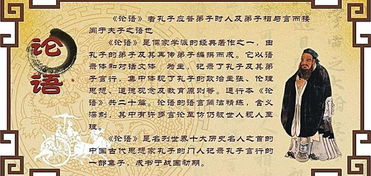 论语
《论语》者孔子应答弟子时人及弟子相与言而接
闻于夫子之语也
《论语》是儒家学派的经典著作之一,由
孔子的弟子及其再传弟子编撰而成。它以语
录体和对话文体为主,记录了孔子及其弟
子言行,集中体现了孔子的政治主张、伦理
思想、道德观念及教育原则等。通行本《论
语》共二十篇。论语的语言简洁精炼,含义
深刻,其中有许多言论至今仍被世人视为至
理。
《论语》是名列世界十大历史名人之首的
中国古代思想家孔子的门人记录孔子言行的
一部集子,成书于战国初期。